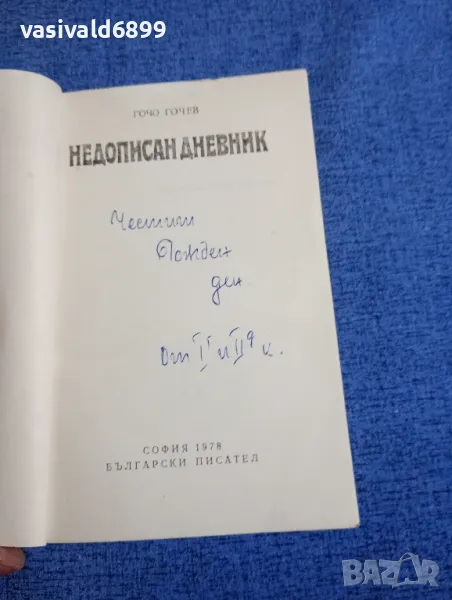 vasivald6899
ГОЧО ГОЧЕВ
НЕДОПИСАН ДНЕВНИК
Честит
Рожден
ден
От I и II к.
СОФИЯ 1978
БЪЛГАРСКИ ПИСАТЕЛ
BAZAR